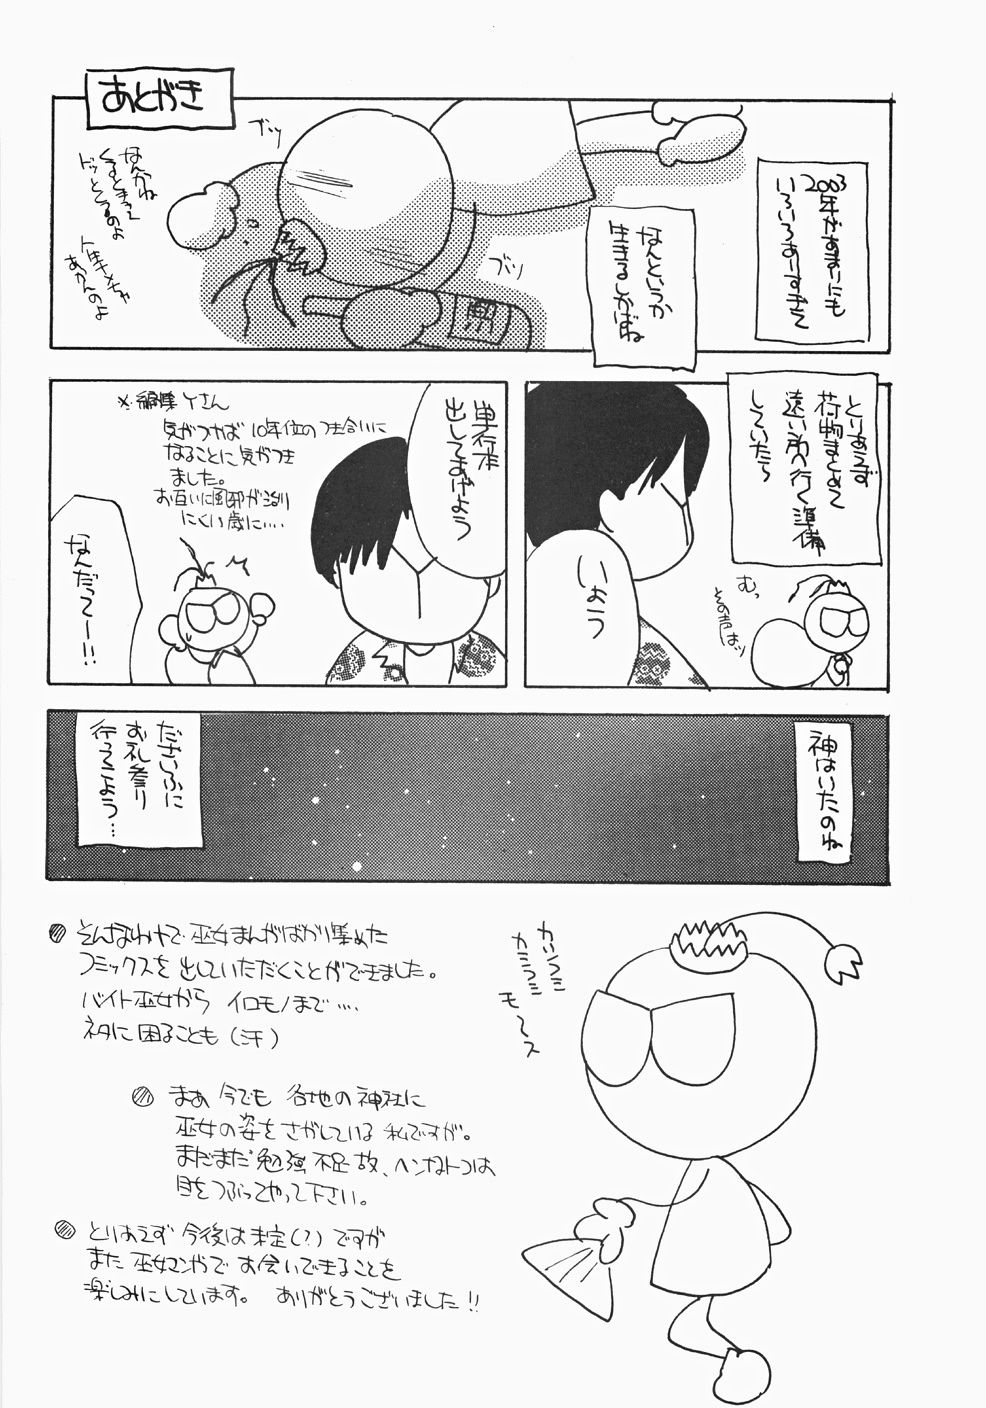 あとがき
2003
年があまりにも
いろいろありすぎて
なんというか
生きるしかばね
ブツ
ブツ
なんかね
くるときって
ドッとくるのよ
あかんのよ
とりあえず
荷物まとめて
遠い所へ行く準備
していたら
むっ
その声はっ
いよう
単行本
出してあげよう
※編集Yさん
気がつけば10年位のつき合いに
なることに気がつき
ました。
お互いに風邪が治り
にくい歳に‥‥
なんだってー!!
神はいたのね
だざいふに
お礼参り
行ってこよう…
そんなわけで巫女まんがばかり集めた
コミックスを出していただくことができました。
バイト巫女から イロモノまで‥‥
ネタに困ることも(汗)
まあ今でも 各地の神社に
巫女の姿をさがしている私ですが。
まだまだ勉強不足故、ヘンなトコは
目をつぶってやって下さい。
とりあえず 今後は未定(?)ですが
また巫女マンガでお会いできることを
楽しみにしています。 ありがとうございました!!